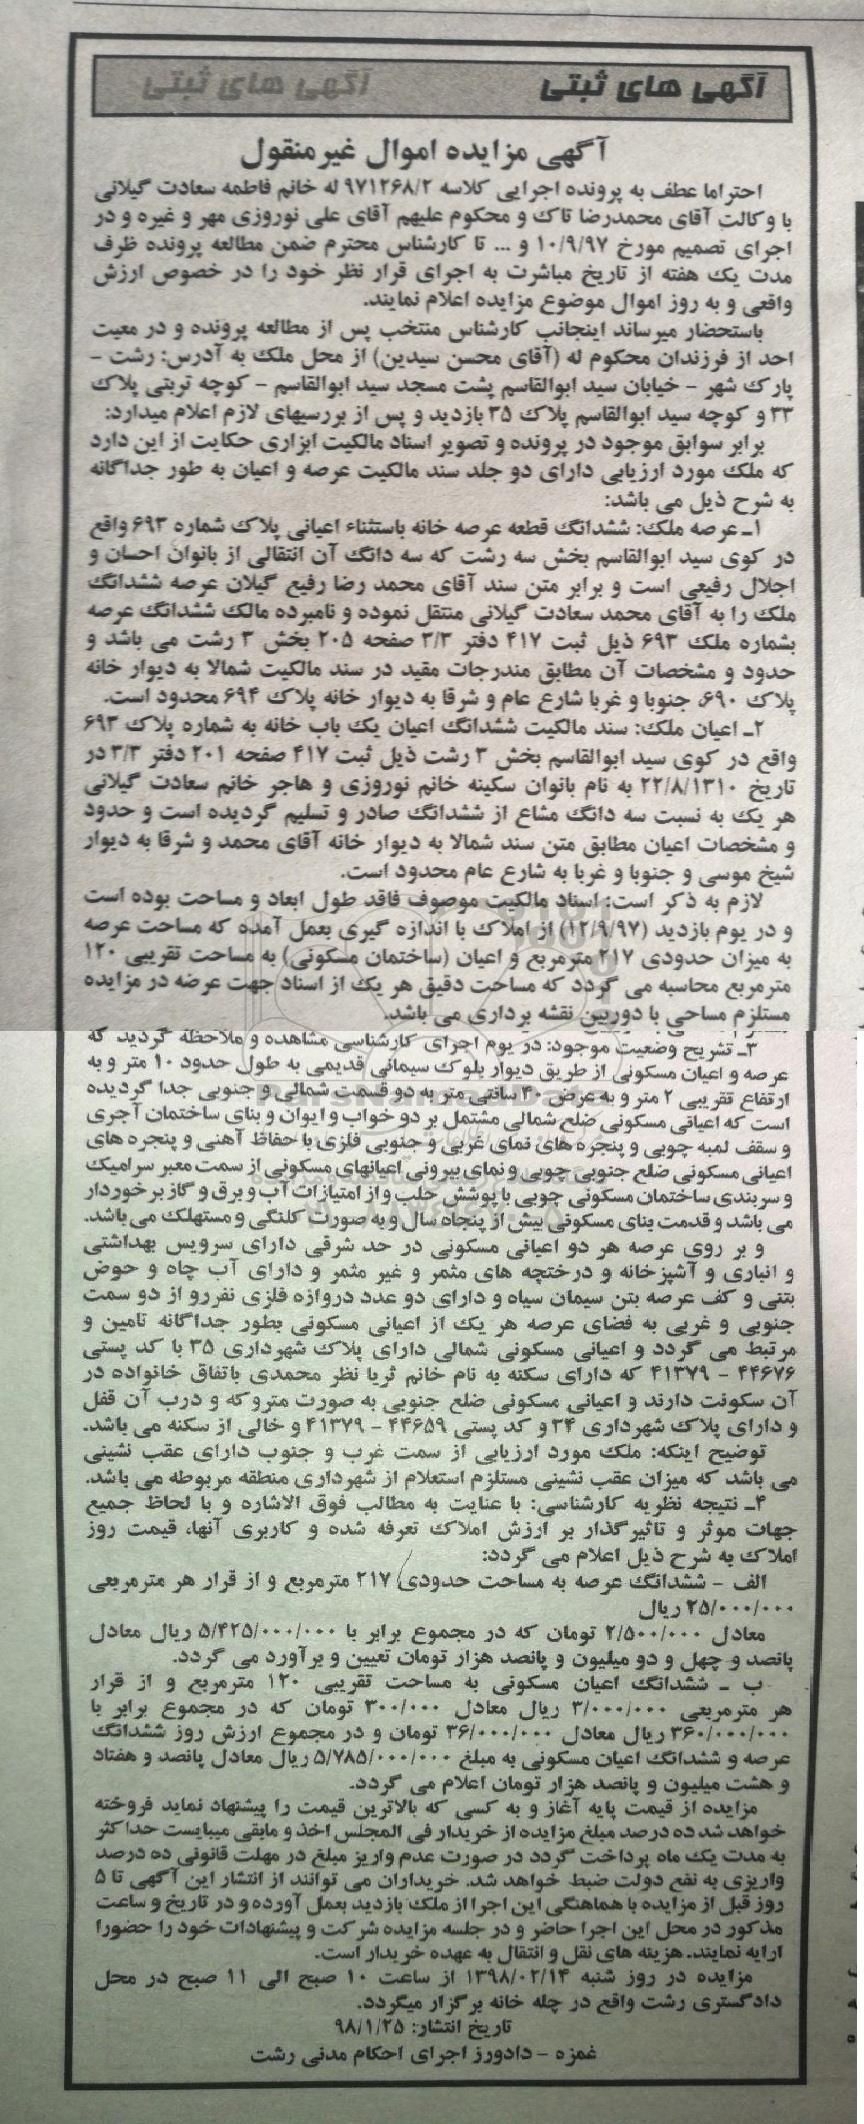 آگهی های ثبتی
آگهی های ثبتی
آگهی مزایده اموال غیرمنقول
احتراما عطف به پرونده اجرایی کلاسه ۹۷۱۲۶۸/۲ له خانم فاطمه سعادت گیلانی
با وکالت آقای محمدرضا تاک و محکوم علیهم آقای علی نوروزی مهر و غیره و در
اجرای تصمیم مورخ ۱۰/۹/۹۷ و ... تا کارشناس محترم ضمن مطالعه پرونده ظرف
مدت یک هفته از تاریخ مباشرت به اجرای قرار نظر خود را در خصوص ارزش
واقعی و به روز اموال موضوع مزایده اعلام نمایند.
باستحضار میرساند اینجانب کارشناس منتخب پس از مطالعه پرونده و در معیت
احد از فرزندان محکوم له (آقای محسن سیدین) از محل ملک به آدرس: رشت –
پارک شهر – خیابان سید ابوالقاسم پشت مسجد سید ابوالقاسم – کوچه تربتی پلاک
۳۳ و کوچه سید ابوالقاسم پلاک ۳۵ بازدید و پس از بررسیهای لازم اعلام میدارد:
برابر سوابق موجود در پرونده و تصویر اسناد مالکیت ابزاری حکایت از این دارد
که ملک مورد ارزیابی دارای دو جلد سند مالکیت عرصه و اعیان به طور جداگانه
به شرح ذیل می باشد:
۱ـ عرصه ملک: ششدانگ قطعه عرصه خانه باستثناء اعیانی پلاک شماره ۶۹۳ واقع
در کوی سید ابوالقاسم بخش سه رشت که سه دانگ آن انتقالی از بانوان احسان و
اجلال رفیعی است و برابر متن سند آقای محمد رضا رفیع گیلان عرصه ششدانگ
ملک را به آقای محمد سعادت گیلانی منتقل نموده و نامبرده مالک ششدانگ عرصه
بشماره ملک ۶۹۳ ذیل ثبت ۴۱۷ دفتر ۳/۳ صفحه ۲۰۵ بخش ۳ رشت می باشد و
حدود و مشخصات آن مطابق مندرجات مقید در سند مالکیت شمالا به دیوار خانه
پلاک ۶۹۰، جنوبا و غربا شارع عام و شرقا به دیوار خانه پلاک ۶۹۴ محدود است.
۲ـ اعیان ملک: سند مالکیت ششدانگ اعیان یک باب خانه به شماره پلاک ۶۹۳
واقع در کوی سید ابوالقاسم بخش ۳ رشت ذیل ثبت ۴۱۷ صفحه ۲۰۱ دفتر ۳/۳ در
تاریخ ۲۲/۸/۱۳۱۰ به نام بانوان سکینه خانم نوروزی و هاجر خانم سعادت گیلانی
هر یک به نسبت سه دانگ مشاع از ششدانگ صادر و تسلیم گردیده است و حدود
و مشخصات اعیان مطابق متن سند شمالا به دیوار خانه آقای محمد و شرقا به دیوار
شیخ موسی و جنوبا و غربا به شارع عام محدود است.
لازم به ذکر است: اسناد مالکیت موصوف فاقد طول ابعاد و مساحت بوده است
و در یوم بازدید (۱۲/۹/۹۷) از املاک با اندازه گیری بعمل آمده که مساحت عرصه
به میزان حدودی ۲۱۷ مترمربع و اعیان (ساختمان مسکونی) به مساحت تقریبی ۱۲۰
مترمربع محاسبه می گردد که مساحت دقیق هر یک از اسناد جهت عرضه در مزایده
مستلزم مساحی با دوربین نقشه برداری می باشد.
۳ـ تشریح وضعیت موجود: در یوم اجرای کارشناسی مشاهده و ملاحظه گردید که
عرصه و اعیان مسکونی از طریق دیوار بلوک سیمانی قدیمی به طول حدود ۱۰ متر و به
ارتفاع تقریبی ۲ متر و به عرض ۴۰ سانتی متر به دو قسمت شمالی و جنوبی جدا گردیده
است که اعیانی مسکونی ضلع شمالی مشتمل بر دو خواب و ایوان و بنای ساختمان آجری
و سقف لمبه چوبی و پنجره های نمای غربی و جنوبی فلزی با حفاظ آهنی و پنجره های
اعیانی مسکونی ضلع جنوبی چوبی و نمای بیرونی اعیانهای مسکونی از سمت معبر سرامیک
و سربندی ساختمان مسکونی چوبی با پوشش حلب و از امتیازات آب و برق و گاز برخوردار
می باشد و قدمت بنای مسکونی بیش از پنجاه سال و به صورت کلنگی و مستهلک می باشد.
و بر روی عرصه هر دو اعیانی مسکونی در حد شرقی دارای سرویس بهداشتی
و انباری و آشپزخانه و درختچه های مثمر و غیر مثمر و دارای آب چاه و حوض
بتنی و کف عرصه بتن سیمان سیاه و دارای دو عدد دروازه فلزی نفررو از دو سمت
جنوبی و غربی به فضای عرصه هر یک از اعیانی مسکونی بطور جداگانه تامین و
مرتبط می گردد و اعیانی مسکونی شمالی دارای پلاک شهرداری ۳۵ با کد پستی
۴۴۶۷۶ – ۴۱۳۷۹ که دارای سکنه به نام خانم ثریا نظر محمدی باتفاق خانواده در
آن سکونت دارند و اعیانی مسکونی ضلع جنوبی به صورت متروکه و درب آن قفل
و دارای پلاک شهرداری ۳۴ و کد پستی ۴۴۶۵۹ – ۴۱۳۷۹ و خالی از سکنه می باشد.
توضیح اینکه: ملک مورد ارزیابی از سمت غرب و جنوب دارای عقب نشینی
می باشد که میزان عقب نشینی مستلزم استعلام از شهرداری منطقه مربوطه می باشد.
۴ـ نتیجه نظریه کارشناسی: با عنایت به مطالب فوق الاشاره و با لحاظ جمیع
جهات موثر و تاثیرگذار بر ارزش املاک تعرفه شده و کاربری آنها، قیمت روز
املاک به شرح ذیل اعلام می گردد:
الف – ششدانگ عرصه به مساحت حدودی ۲۱۷ مترمربع و از قرار هر مترمربعی
۲۵/۰۰۰/۰۰۰ ریال
معادل ۲/۵۰۰/۰۰۰ تومان که در مجموع برابر با ۵/۴۲۵/۰۰۰/۰۰۰ ریال معادل
پانصد و چهل و دو میلیون و پانصد هزار تومان تعیین و برآورد می گردد.
ب – ششدانگ اعیان مسکونی به مساحت تقریبی ۱۲۰ مترمربع و از قرار
هر مترمربعی ۳/۰۰۰/۰۰۰ ریال معادل ۳۰۰/۰۰۰ تومان که در مجموع برابر با
۳۶۰/۰۰۰/۰۰۰ ریال معادل ۳۶/۰۰۰/۰۰۰ تومان و در مجموع ارزش روز ششدانگ
عرصه و ششدانگ اعیان مسکونی به مبلغ ۵/۷۸۵/۰۰۰/۰۰۰ ریال معادل پانصد و هفتاد
و هشت میلیون و پانصد هزار تومان اعلام می گردد.
مزایده از قیمت پایه آغاز و به کسی که بالاترین قیمت را پیشنهاد نماید فروخته
خواهد شد ده درصد مبلغ مزایده از خریدار فی المجلس اخذ و مابقی میبایست حداکثر
به مدت یک ماه پرداخت گردد در صورت عدم واریز مبلغ در مهلت قانونی ده درصد
واریزی به نفع دولت ضبط خواهد شد. خریداران می توانند از انتشار این آگهی تا ۵
روز قبل از مزایده با هماهنگی این اجرا از ملک بازدید بعمل آورده و در تاریخ و ساعت
مذکور در محل این اجرا حاضر و در جلسه مزایده شرکت و پیشنهادات خود را حضورا
ارایه نمایند. هزینه های نقل و انتقال به عهده خریدار است.
مزایده در روز شنبه ۱۳۹۸/۰۲/۱۴ از ساعت ۱۰ صبح الی ۱۱ صبح در محل
دادگستری رشت واقع در چله خانه برگزار میگردد.
تاریخ انتشار: ۹۸/۱/۲۵
غمزه – دادورز اجرای احکام مدنی رشت